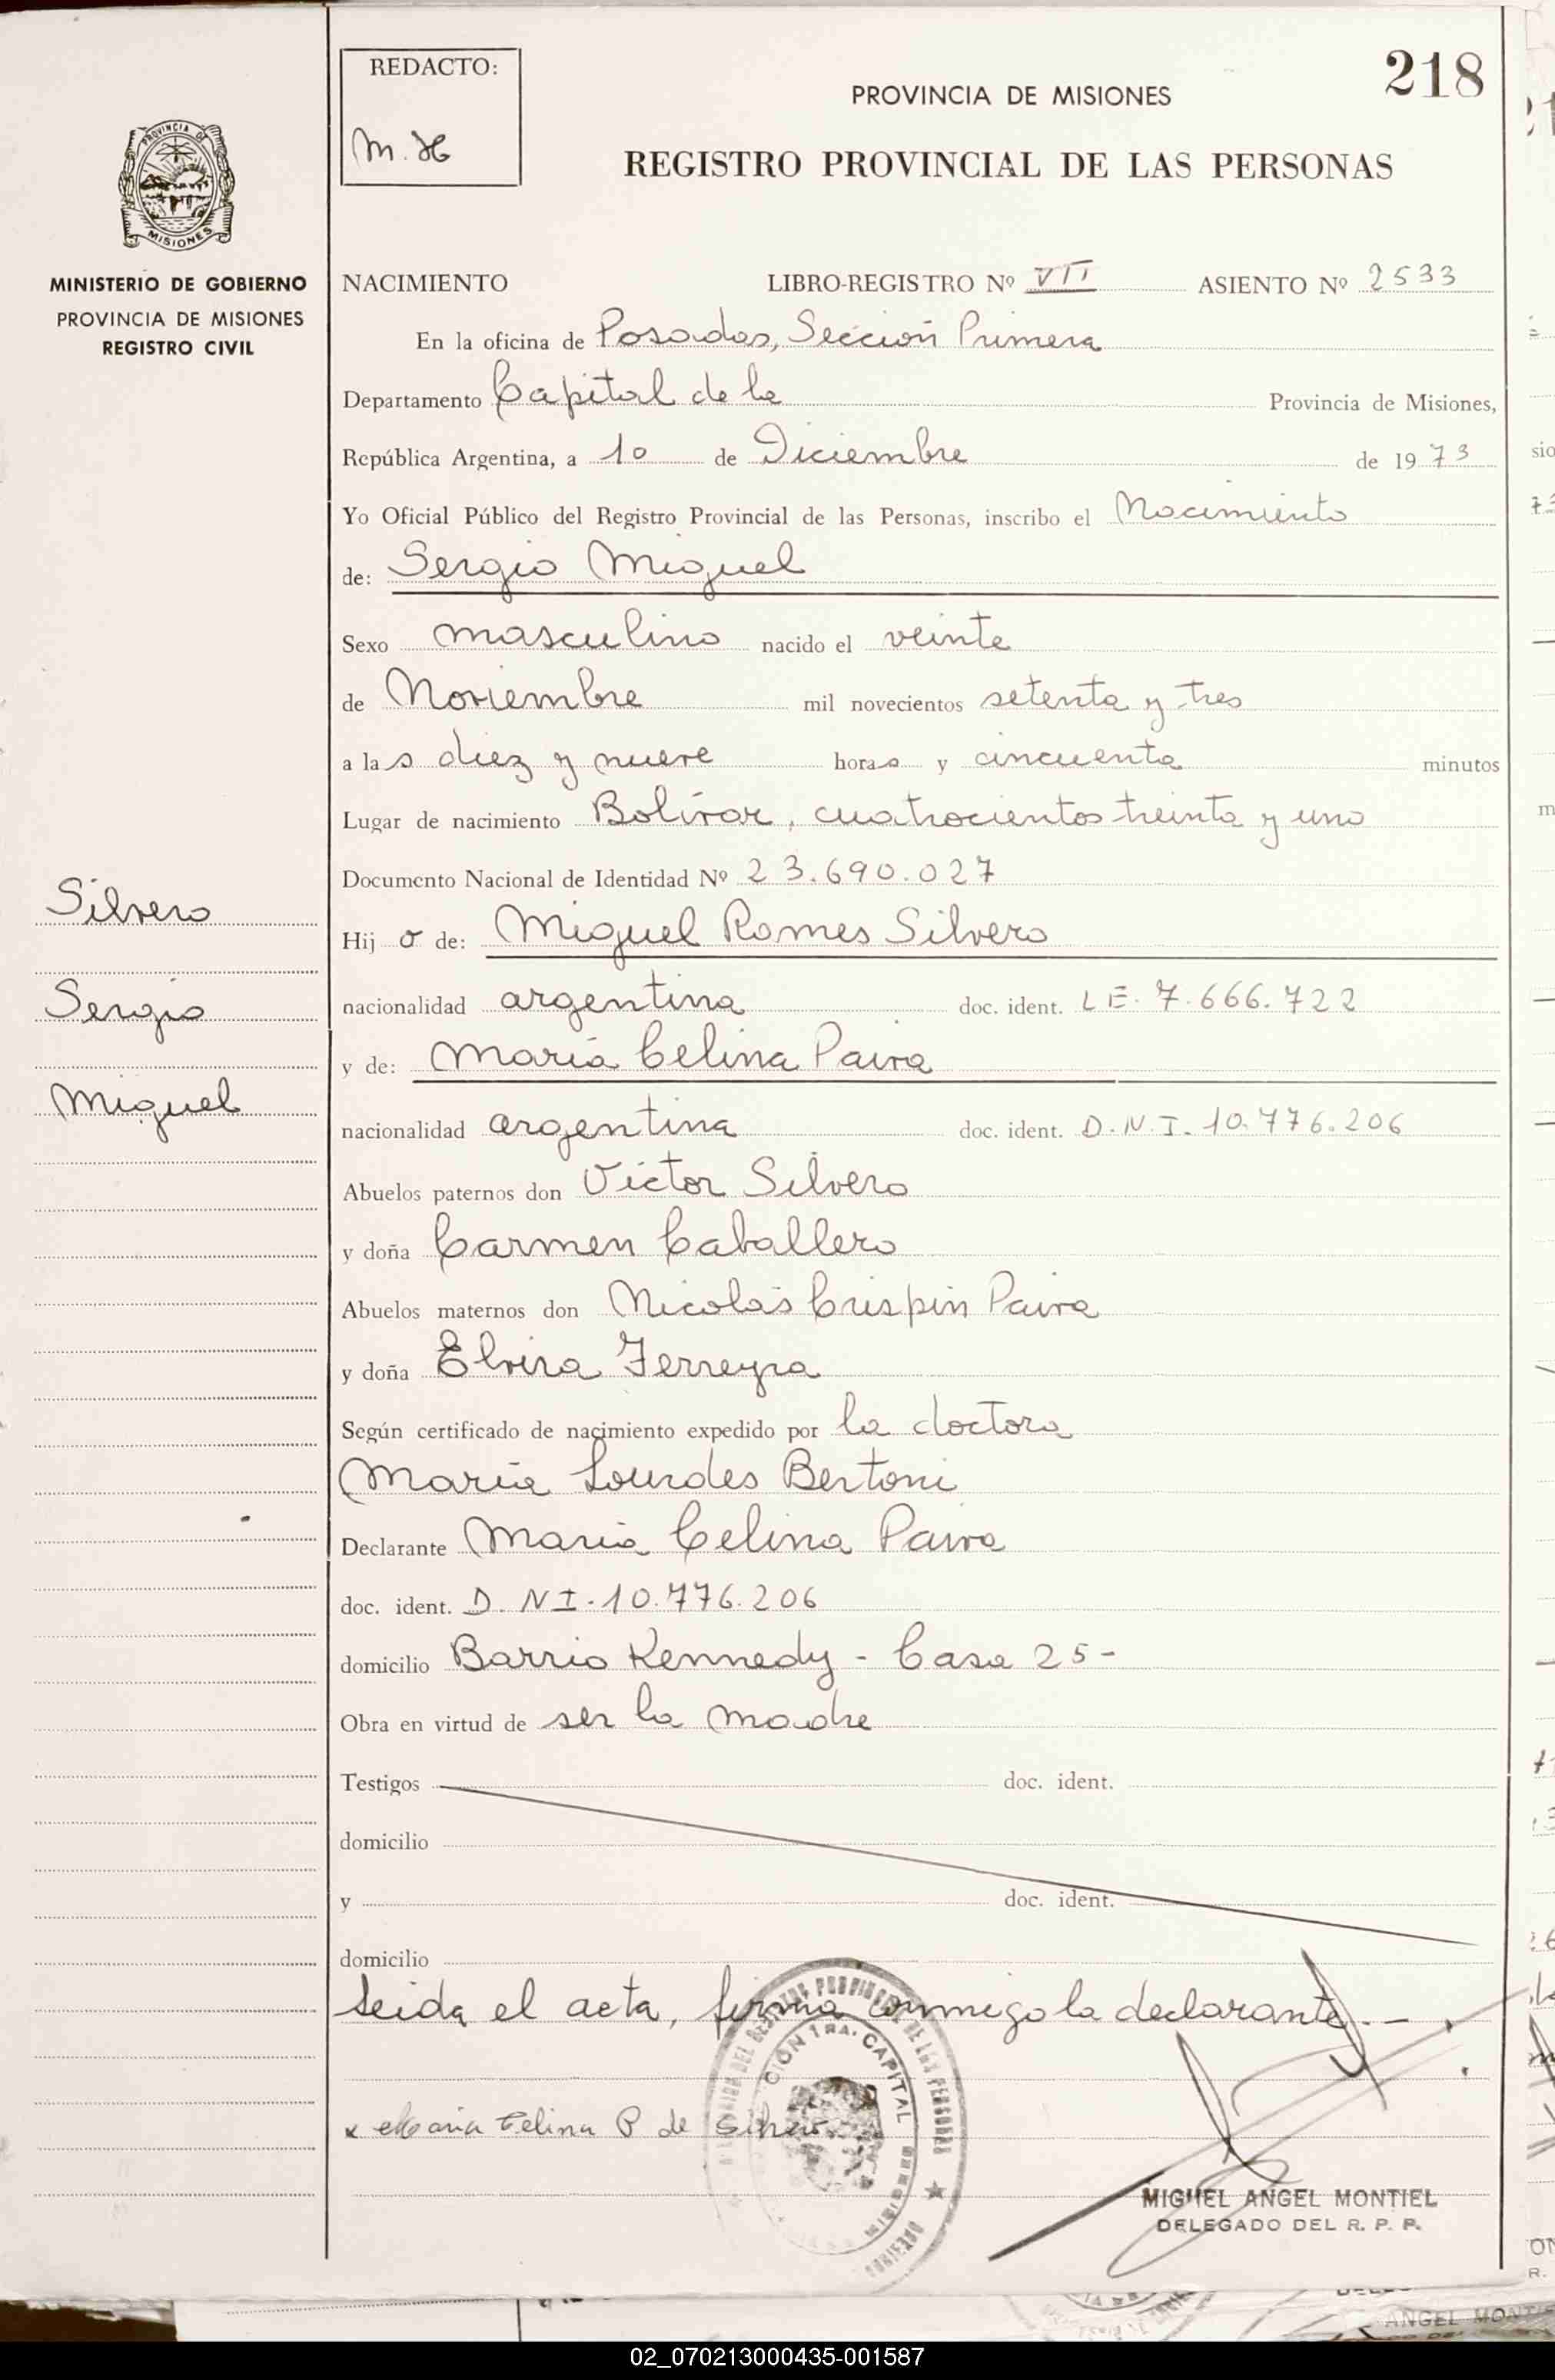 REDACTO:
M. H
218
PROVINCIA DE MISIONES
REGISTRO PROVINCIAL DE LAS PERSONAS
PROVINCIA DE
MISIONES
MINISTERIO DE GOBIERNO
PROVINCIA DE MISIONES
REGISTRO CIVIL
NACIMIENTO LIBRO-REGISTRO Nº VII ASIENTO Nº 2533
En la oficina de Posadas, Sección Primera
Departamento Capital de la Provincia de Misiones,
República Argentina, a 10 de Diciembre de 1973
Yo Oficial Público del Registro Provincial de las Personas, inscribo el Nacimiento
de: Sergio Miguel
Sexo masculino nacido el veinte
de Noviembre mil novecientos setenta y tres
a las diez y nueve horas y cincuenta minutos
Lugar de nacimiento Bolívar, cuatrocientos treinta y uno
Documento Nacional de Identidad Nº 23.690.027
Silvero
Sergio
Miguel
Hijo de: Miguel Romes Silvero
nacionalidad argentina doc. ident. L E. 7.666.722
y de: María Celina Paiva
nacionalidad argentina doc. ident. D.N.I. 10.776.206
Abuelos paternos don Victor Silvero
y doña Carmen Caballero
Abuelos maternos don Nicolás Crispin Paiva
y doña Elvira Ferreyra
Según certificado de nacimiento expedido por la doctora
María Lourdes Bertoni
Declarante María Celina Paiva
doc. ident. D. N I. 10.776.206
domicilio Barrio Kennedy - Casa 25-
Obra en virtud de ser la madre
Testigos doc. ident.
domicilio
y doc. ident.
domicilio
Leida el acta, firma conmigo la declarante.-
CION 1RA. CAPITAL
x Maria Celina P de Silvero
MIGUEL ANGEL MONTIEL
DELEGADO DEL R. P. P.
ANGEL MONTI
02_070213000435-001587